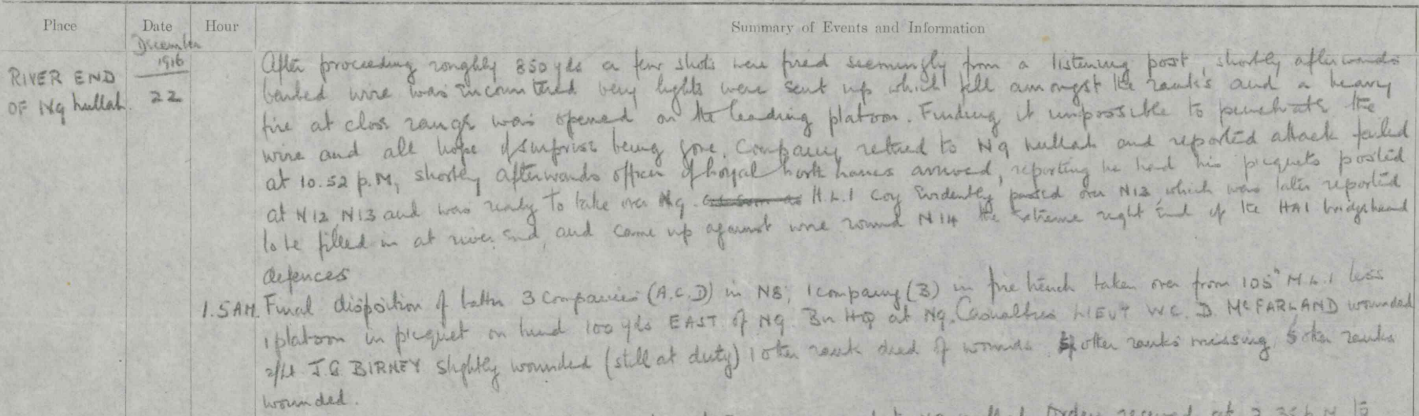 Place Date Hour Summary of Events and Information
December
1916
RIVER END
OF N9 Nullah.
22
After proceeding roughly 850 yds a few shots were fired seemingly from a listening post, shortly afterwards
barbed wire was incountered very lights were sent up which fell amongst the ranks and a heavy
fire at close range was opened on the leading platoon. Finding it impossible to penetrate the
wire and all hope of surprise being gone, Company retired to N9 nullah and reported attack failed
at 10.52 p.m, shortly afterwards officer of loyal north lancs arrived, reporting he had his picquets posted
at N12 N13 and was ready to take over N9. H.L.I coy evidently passed over N12 which was later reported
to be filled in at river end, and came up against wire round N14 the extreme right end of the HAI bridgehead
defences
1.5AM. Final disposition of battn 3 Companies (A.C.D) in N8, 1 company (B) in fire trench taken over from 105th M.L.I less
1 platoon in picquet on bund 100 yds EAST of N9. Bn HQ at N9. Casualties LIEUT W.C. D. McFARLAND wounded
2/Lt J.G BIRNEY slightly wounded (still at duty) 1 other rank died of wounds other ranks missing, 5 other ranks
wounded.
Orders received at